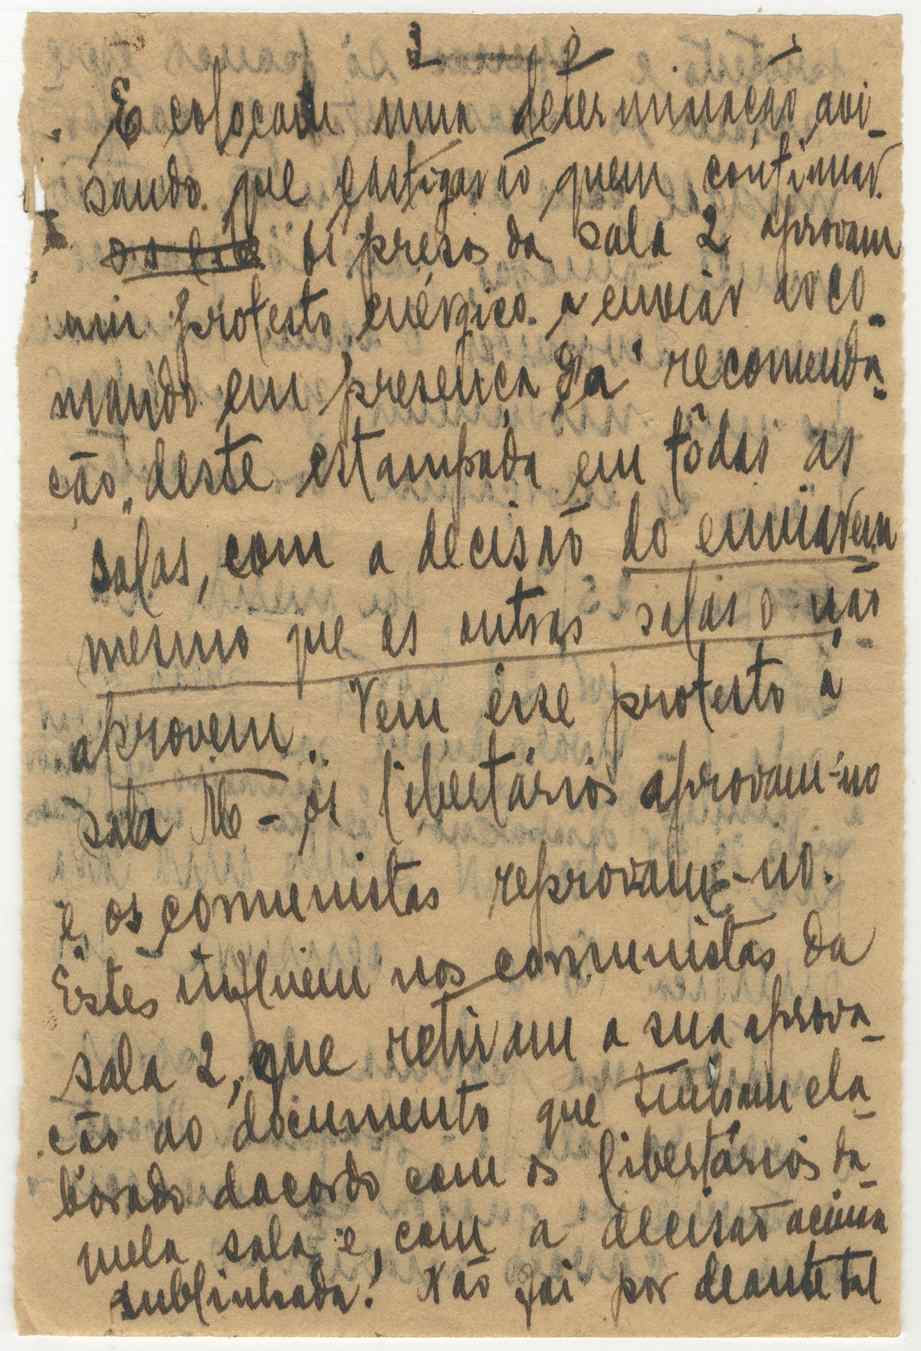 2
E colocam uma determinação avi-
sando que castigarão quem continuar.
Os presos da sala 2 aprovam
um protesto enérgico a enviar ao co-
mando em presença da "recomenda-
ção" deste estampada em tôdas as
salas, com a decisão do enviarem
mesmo que as outras salas o não
aprovem. Vem êsse protesto à
sala 1B - os libertários aprovam-no
e os comunistas reprovam-no.
Estes influem nos comunistas da
sala 2, que retiram a sua aprova-
ção ao documento que tinham ela-
borado dacordo com os libertários da-
quela sala e, com a decisão acima
sublinhada! Não foi por deante tal